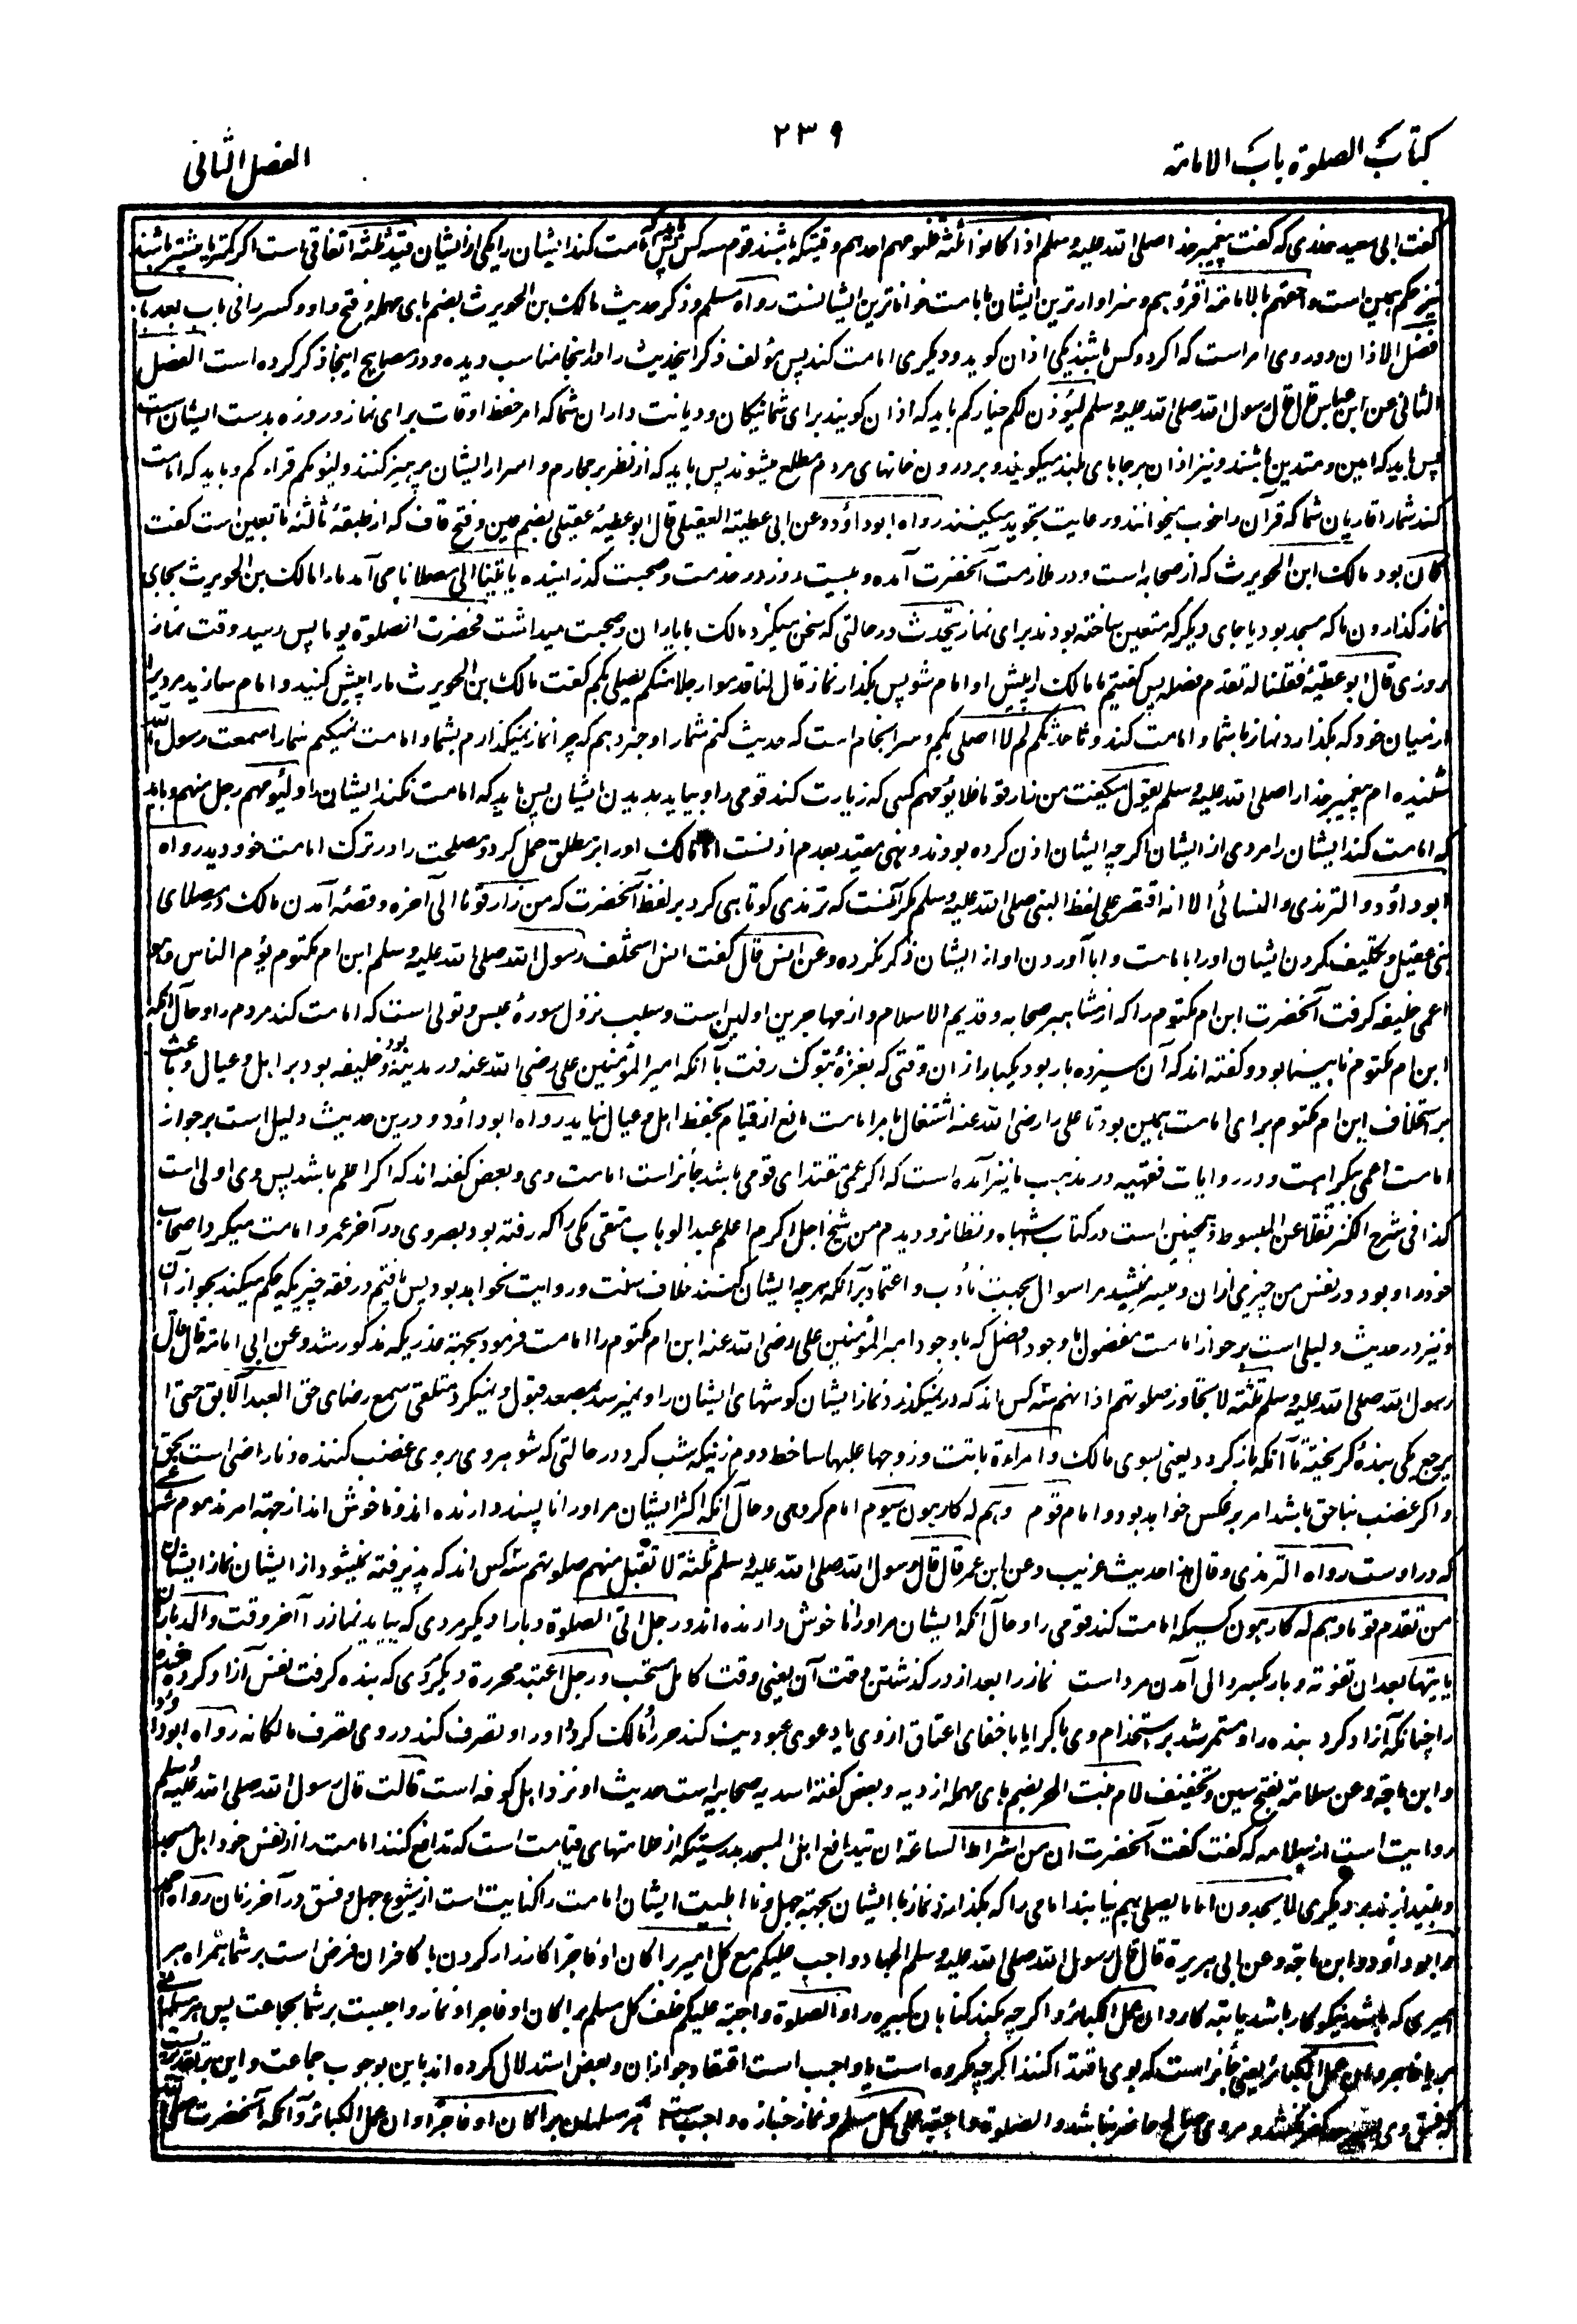 كتاب الصلوة باب الامامة
٢٣٩
الفصل الثانی
گفت ابی سعید خدری که گفت پیغمبر خدا صلی الله علیه وسلم اذا کانوا ثلثة فلیؤمهم احدهم وقتیکه باشند قوم سه کس پس باید که امامت کند ایشان را یکی از ایشان قید ثلثه اتفاقی است اگر کمتر یا بیشتر باشند
نیز حکم همین است واحقهم بالامامة اقرؤهم وسزاوارترین ایشان بامامت خواناترین ایشانست رواه مسلم وذکر حدیث مالک بن الحویرث بضم حای مهمله وفتح واو وکسر را فی باب بعد باب
فضل الاذان ودر وی امر است که اگر دو کس باشند یکی اذان گوید ودیگری امامت کند پس مؤلف ذکر این حدیث را در آنجا مناسب دیده ودر مصابیح اینجا ذکر کرده است الفصل
الثانی عن ابن عباس قال قال رسول الله صلی الله علیه وسلم لیؤذن لکم خیارکم باید که اذان گویند برای شما نیکان ودیانت داران شما که امر حفظ اوقات برای نماز وروزه بدست ایشان است
پس باید که امین ومتدین باشند ونیز اذان بر جاهای بلند میگویند وبر درون خانهای مردم مطلع میشوند پس باید که از نظر بر محارم واسرار ایشان پرهیز کنند ولیؤمکم قراءکم وباید که امامت
کنند شمارا قاریان شما که قرآن را خوب میخوانند ورعایت تجوید میکنند رواه ابوداؤد وعن ابی عطیة العقیلی قال ابوعطیه عقیلی بضم عین وفتح قاف که از طبقهٔ ثالثه تابعین است گفت
کان بود مالک ابن الحویرث که از صحابه است ودر ملازمت آنحضرت آمده وبیست روز در خدمت وصحبت گذرانیده یأتینا الی مصلانا می آمد مارا مالک بن الحویرث بجای
نماز گذاردن ما که مسجد بود یا جای دیگر که متعین ساخته بودند برای نماز یتحدث در حالتی که سخن میکرد مالک با یاران وصحبت میداشت فحضرت الصلوة یوما پس رسید وقت نماز
روزی قال ابوعطیة فقلنا له تقدم فصله پس گفتیم ما مالک را پیش او امام شو پس بگذار نماز قال لنا قدموا رجلا منکم یصلی بکم گفت مالک بن الحویرث مارا پیش کنید وامام سازید مردی را
از میان خود که بگذارد نماز باشما وامامت کند وساحدثکم لم لا اصلی بکم وسرانجام است که حدیث کنم شمارا وخبر دهم که چرا نماز نمیگذارم بشما وامامت نمیکنم شمارا سمعت رسول الله
شنیده ام پیغمبر خدارا صلی الله علیه وسلم یقول میگفت من زار قوما فلا یؤمهم کسی که زیارت کند قومی را وبیاید بدیدن ایشان پس باید که امامت نکند ایشان را ولیؤمهم رجل منهم وباید
که امامت کند ایشان را مردی از ایشان اگرچه ایشان اذن کرده بودند ونهی مقید بعدم اذنست اما مالک اورا بر مطلق حمل کرد ومصلحت را در ترک امامت خود دید رواه
ابوداؤد والترمذی والنسائی الا انه اقتصر علی لفظ النبی صلی الله علیه وسلم مگر آنست که ترمذی کوتاهی کرد بر لفظ آنحضرت که من زار قوما الی آخره وقصهٔ آمدن مالک در مصلای
بنی عقیل وتکلیف کردن ایشان اورا بامامت وابا آوردن او از ایشان ذکر نکرده وعن انس قال گفت انس استخلف رسول الله صلی الله علیه وسلم ابن ام مکتوم یؤم الناس وهو
اعمی خلیفه گرفت آنحضرت ابن ام مکتوم را که از مشاهیر صحابه وقدیم الاسلام واز مهاجرین اولین است وسبب نزول سورهٔ عبس وتولی است که امامت کند مردم را وحال آنکه
ابن ام مکتوم نابینا بود وگفته اند که آن سیزده بار بود یکبار ازان وقتی که بغزوهٔ تبوک رفت با آنکه امیر المؤمنین علی رضی الله عنه در مدینه بود وخلیفه بود بر اهل وعیال وباعث
بر استخلاف ابن ام مکتوم برای امامت همین بود تا علی را رضی الله عنه اشتغال بامر امامت مانع از قیام بحفظ اهل وعیال نیاید رواه ابوداؤد ودرین حدیث دلیل است بر جواز
امامت اعمی بی کراهت ودر روایات فقهیه در مذهب ما نیز آمده است که اگر اعمی مقتدای قومی باشد جائز است امامت وی وبعض گفته اند که اگر اعلم باشد پس وی اولی است
کذا فی شرح الکنز نقلا عن المبسوط وهمچنین است در کتاب اشباه ونظائر ودیدم من شیخ اجل اکرم اعلم عبدالوهاب متقی مکی را که رفته بود بصر وی در آخر عمر وامامت میکرد اصحاب
خود را وبود در نفس من چیزی ازان ومیسر نمیشد مرا سوال بجهت تأدب واعتماد بر آنکه هرچه ایشان کنند خلاف سنت وروایت نخواهد بود پس یافتم در فقه چیزیکه حکم میکند بجواز آن
ونیز در حدیث دلیلی است بر جواز امامت مفضول با وجود افضل که با وجود امیر المؤمنین علی رضی الله عنه ابن ام مکتوم را امامت فرمود بجهتة عذریکه مذکور شد وعن ابی امامة قال قال
رسول الله صلی الله علیه وسلم ثلثة لا تجاوز صلوتهم اذانهم سه کس اند که در نمیگذرد نماز ایشان گوشهای ایشان را ونمیرسد بمصعد قبول ونمیگردد متلقی بسمع رضای حق العبد الآبق حتی
یرجع یکی بندهٔ گریخته تا آنکه باز گردد یعنی بسوی مالک وامراءة باتت وزوجها علیها ساخط دوم زنیکه شب کرد در حالتی که شوهر وی بر وی غضب کننده وناراضی است بحق
واگر غضب بناحق باشد امر بر عکس خواهد بود وامام قوم وهم له کارهون سیوم امام گروهی وحال آنکه اکثر ایشان مر اورا ناپسند دارنده اند وناخوش اند از جهتة امر مذموم شرعی
که در اوست رواه الترمذی وقال هذا حدیث غریب وعن ابن عمر قال قال رسول الله صلی الله علیه وسلم ثلثة لا تقبل منهم صلوتهم سه کس اند که پذیرفته نمیشود از ایشان نماز ایشان
من تقدم قوما وهم له کارهون کسیکه امامت کند قومی را وحال آنکه ایشان مر اورا ناخوش دارنده اند ورجل اتی الصلوة دبارا ودیگر مردی که بیاید نماز را آخر وقت والدبار ان
یأتیها بعد ان تفوته ودبار بکسر دال آمدن مرد است نماز را بعد از در گذشتن وقت آن یعنی وقت کامل مستحب ورجل اعتبد محررة ودیگر مردی که بنده گرفت نفس آزاد کرده شده
را چنانکه آزاد کرد بنده را ومستمر شد بر استخدام وی باکراه یا باخفای اعتاق از وی یا دعوی عبودیت کند حر را ومالک گردد اورا وتصرف کند در وی تصرف مالکانه رواه ابوداؤد
وابن ماجة وعن سلامة بفتح سین وتخفیف لام بنت الحر بضم حای مهمله ازدیه وبعض گفته اسدیه صحابیه است حدیث او نزد اهل کوفه است قالت قال رسول الله صلی الله علیه وسلم
روایت است از سلامه که گفت گفت آنحضرت ان من اشراط الساعة ان یتدافع اهل المسجد بدرستیکه از علامتهای قیامت است که تدافع کنند امامت را از نفس خود اهل مسجد
وبیندازند بر دیگری لا یجدون اماما یصلی بهم نیابند امامی را که بگذارد نماز با ایشان بجهتة جهل ونا اهلیت ایشان امامت را کنایت است از شیوع جهل وفسق در آخر زمان رواه احمد
وابوداؤد وابن ماجة وعن ابی هریرة قال قال رسول الله صلی الله علیه وسلم الجهاد واجب علیکم مع کل امیر برا کان او فاجرا کارزار کردن با کافران فرض است بر شما همراه هر
امیری که باشد نیکوکار باشد یا تبه کار وان عمل الکبائر واگرچه بکند گناهان کبیره را والصلوة واجبة علیکم خلف کل مسلم برا کان او فاجرا ونماز واجبست بر شما بجماعت پس هر مسلمانی
بر یا فاجر وان عمل الکبائر یعنی جائز است که بوی اقتدا کنند اگرچه مکروه است یا واجب است اعتقاد جواز آن وبعض استدلال کرده اند باین بوجوب جماعت واین بر تقدیریست
که فسق وی بحد کفر نکشد ومردی صالح حاضر نباشد والصلوة واجبة علی کل مسلم ونماز جنازه واجب است بر هر مسلمان برا کان او فاجرا وان عمل الکبائر وآنکه آنحضرت صلی الله